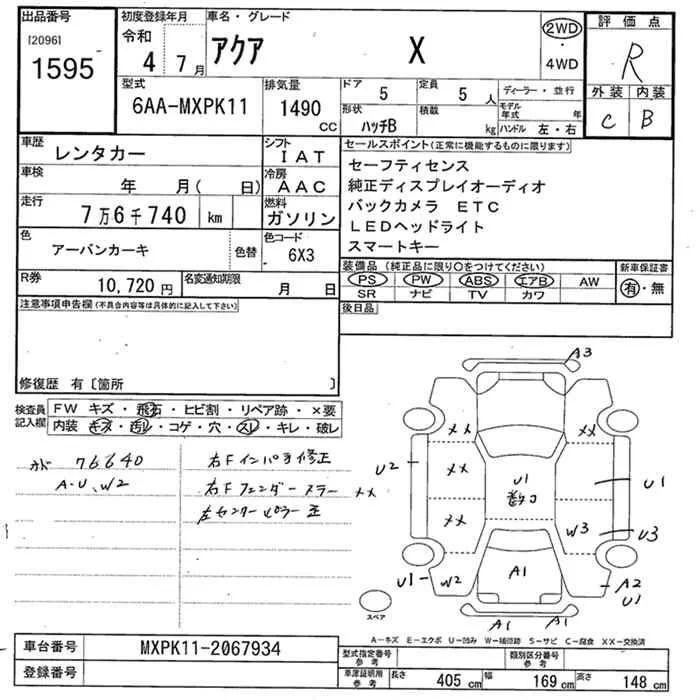 出品番号 初度登録年月 車名・グレード 評価点
[2096] 令和
1595 4 7月 アクア X 2WD ・ 4WD R
型式 排気量 ドア 定員 ディーラー・並行 外装 内装
6AA-MXPK11 1490 CC 5 5人 モデル年式 年 C B
形状 積載 ハンドル 左・右
ハッチB kg
車歴 レンタカー シフト IAT
セールスポイント(正常に機能するものに限ります)
車検 年 月( 日) 冷房 AAC
セーフティセンス
純正ディスプレイオーディオ
走行 7万6千740 km 燃料 ガソリン
バックカメラ ETC
LEDヘッドライト
スマートキー
色 アーバンカーキ 色替 色コード 6X3
装備品(純正品に限り○をつけてください) 新車保証書
R券 10,720円 名変通知期限 月 日
PS PW ABS エアB AW 有・無
SR ナビ TV カワ
注意事項申告欄(不具合内容等は具体的に記入して下さい) 後日品
修復歴 有〔箇所 〕
検査員記入欄 FW キズ・飛石・ヒビ割・リペア跡・×要
内装 キズ・汚レ・コゲ・穴・スレ・キレ・破レ
76640 右Fインパネ修正
A・U、W2 右Fフェンダーステー ××
左センターピラー歪
A3
×× ××
U2 ×× U1 U1
×× W3 U3
U1 W2 A1 A2
U1
A1 A1
スペア
A-キズ E-エクボ U-凹み W-補修跡 S-サビ C-腐食 XX-交換済
車台番号 MXPK11-2067934
登録番号
型式指定番号 参考 類別区分番号 参考
車庫証明用 参考 長さ 405 cm 幅 169 cm 高さ 148 cm